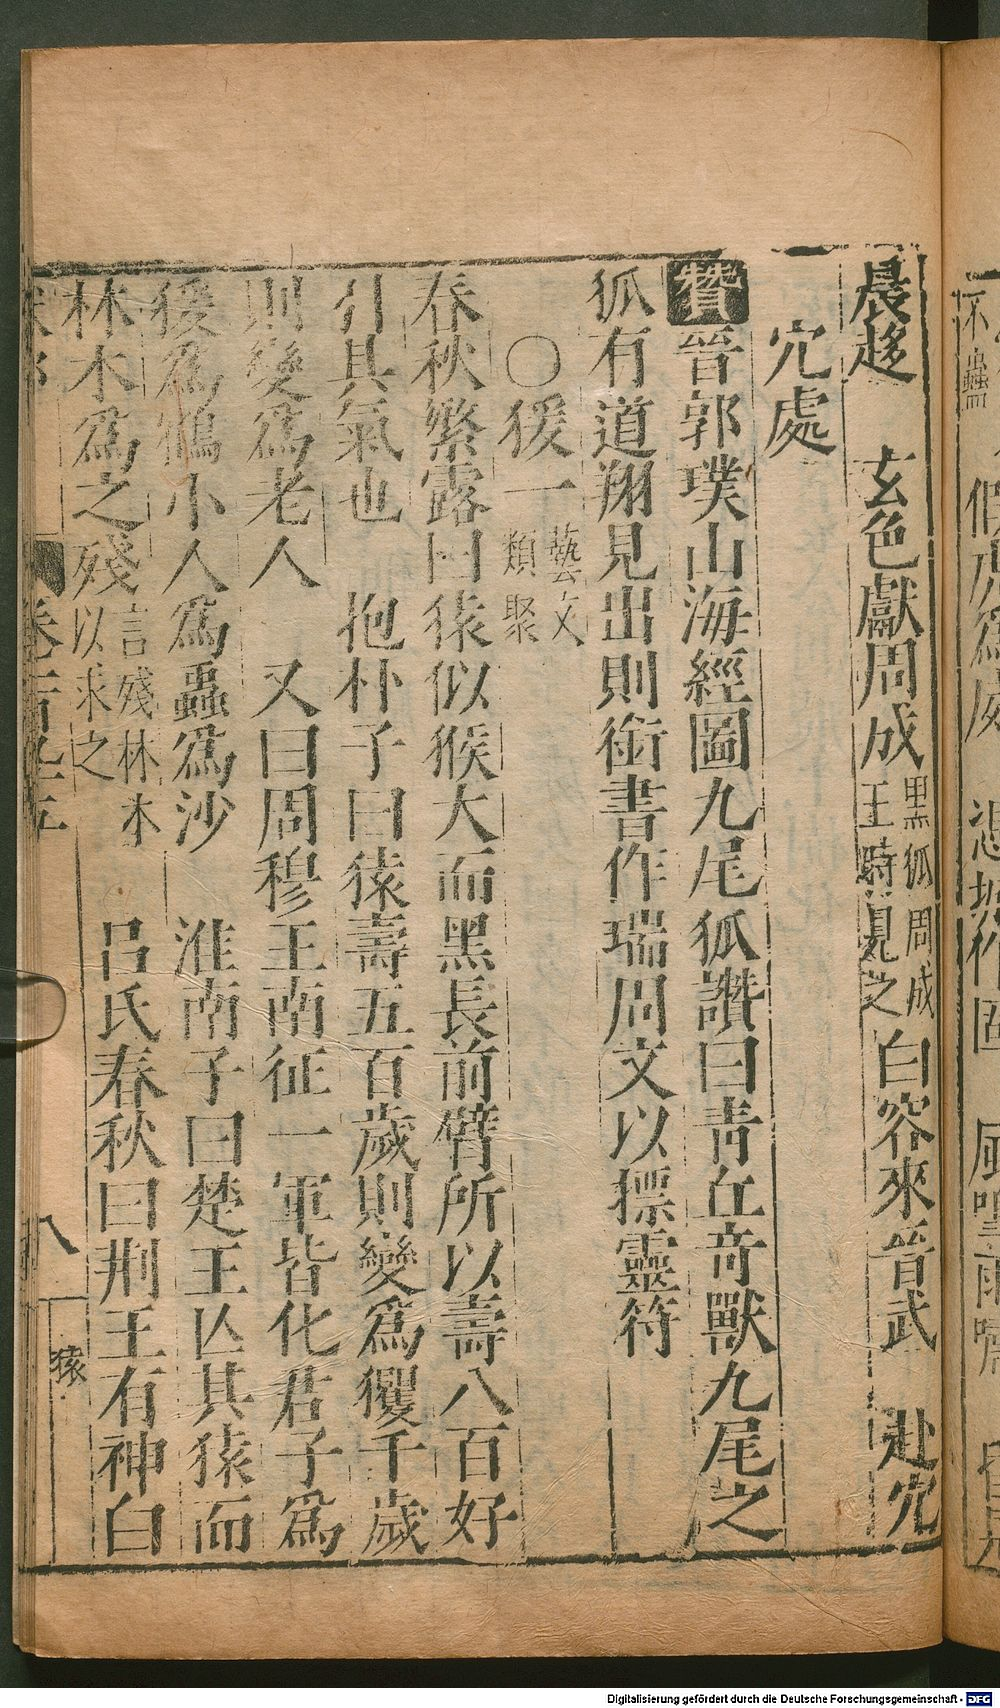 晨趍　玄色獻周成黑狐周成王時見之白容來晉武　赴穴
穴處
贊晉郭璞山海經圖九尾狐讚曰青丘奇獸九尾之
狐有道翔見出則銜書作瑞周文以摽靈符
〇猨一藝文類聚
春秋繁露曰猿似猴大而黑長前臂所以壽八百好
引其氣也　抱朴子曰猿壽五百歲則變爲玃千歲
則變爲老人　又曰周穆王南征一軍皆化君子爲
猨爲鶴小人爲蟲爲沙　淮南子曰楚王亾其猿而
林木爲之殘言殘林木以求之　呂氏春秋曰荆王有神白
卷一百九十五　八　猿
Digitalisierung gefördert durch die Deutsche Forschungsgemeinschaft - DFG